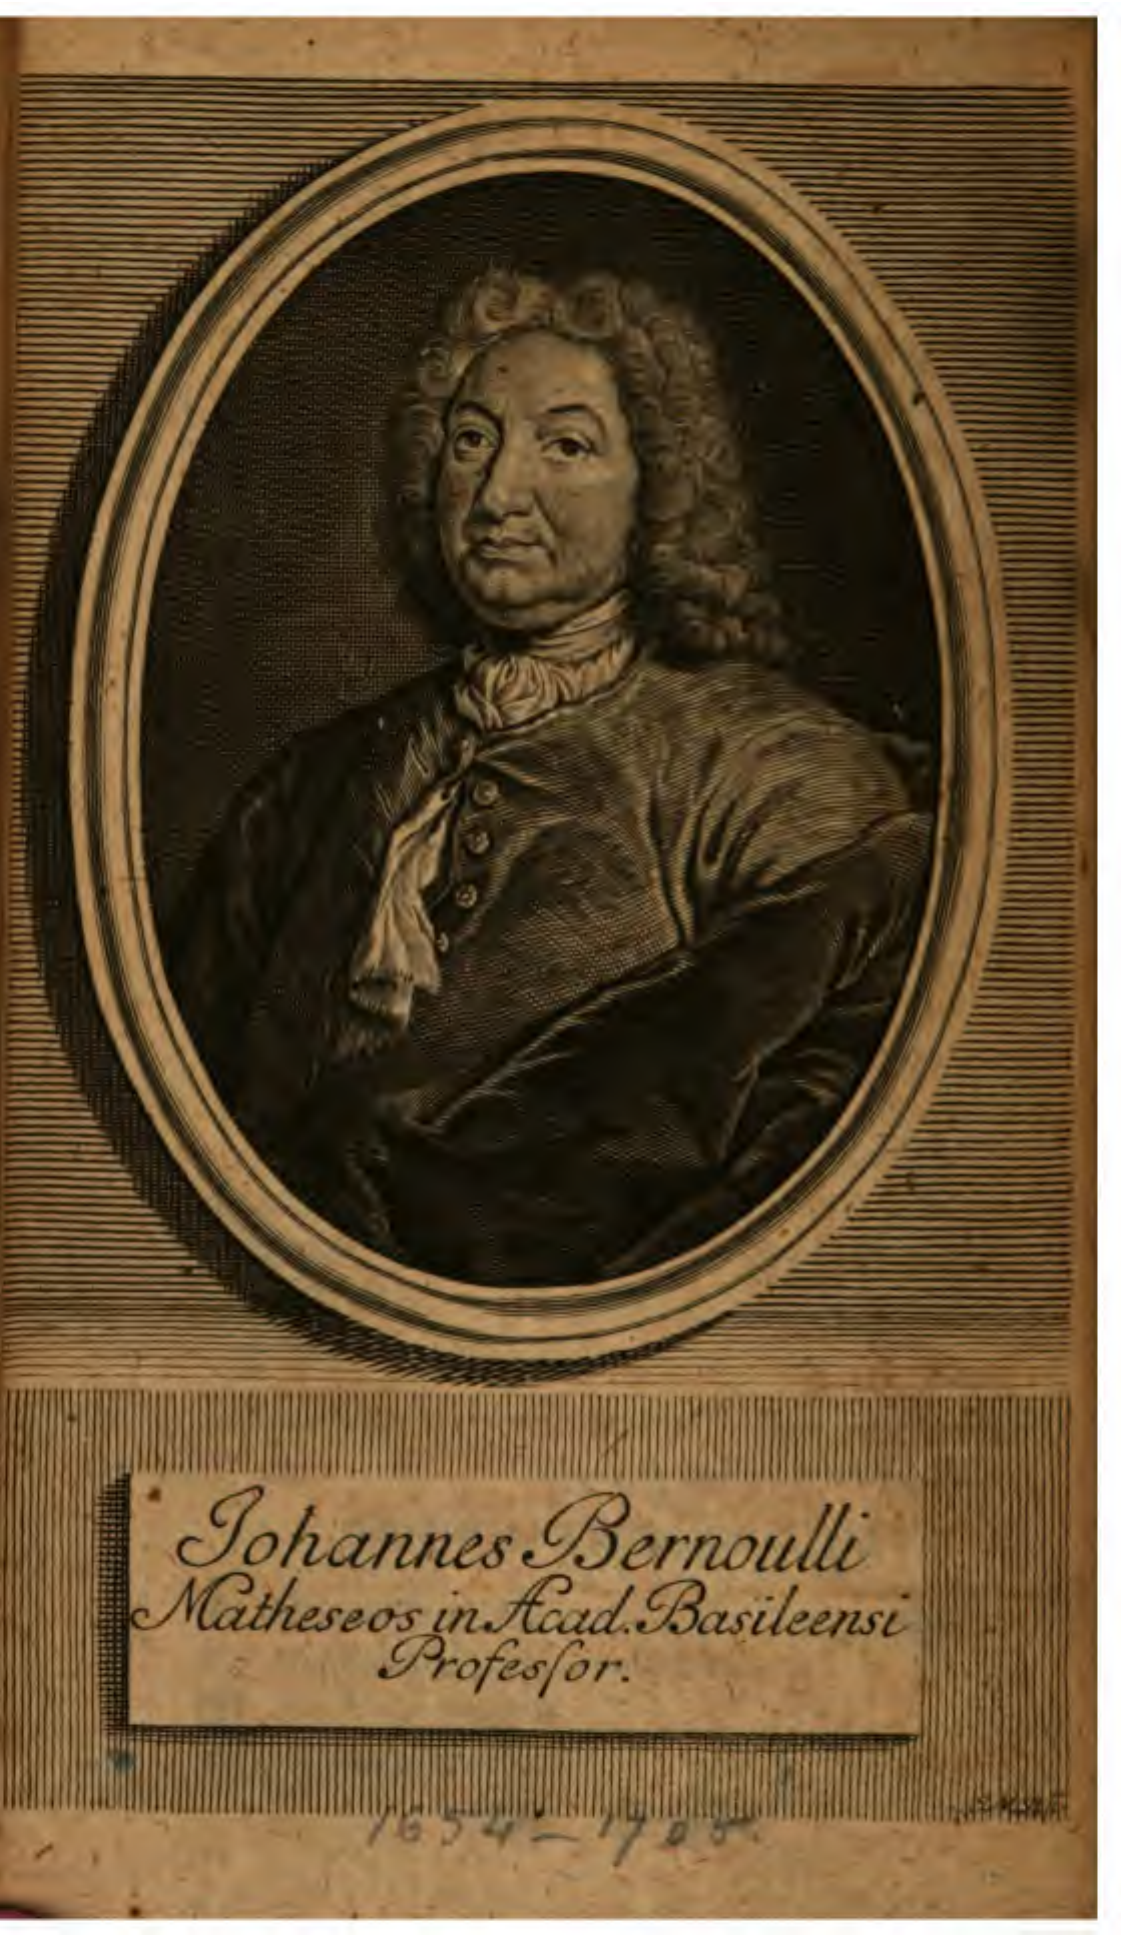 Johannes Bernoulli
Matheseos in Acad. Basileensi
Profesſor.
1654 – 1705